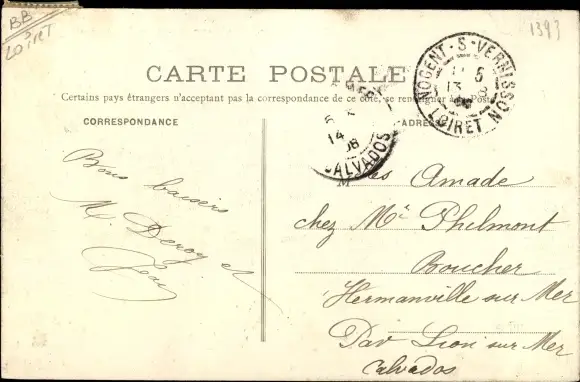 BB
LOIRET
1393
CARTE POSTALE
Certains pays étrangers n'acceptant pas la correspondance de ce côté, se renseigner à la Poste
CORRESPONDANCE
NOGENT-S-VERNISSON
13
LOIRET
14
08
CALVADOS
Bons baisers
M. Denoy et
Jean
Amade
chez Mr Philmont
Boucher
Hermanville sur Mer
Par Lion sur Mer
Calvados